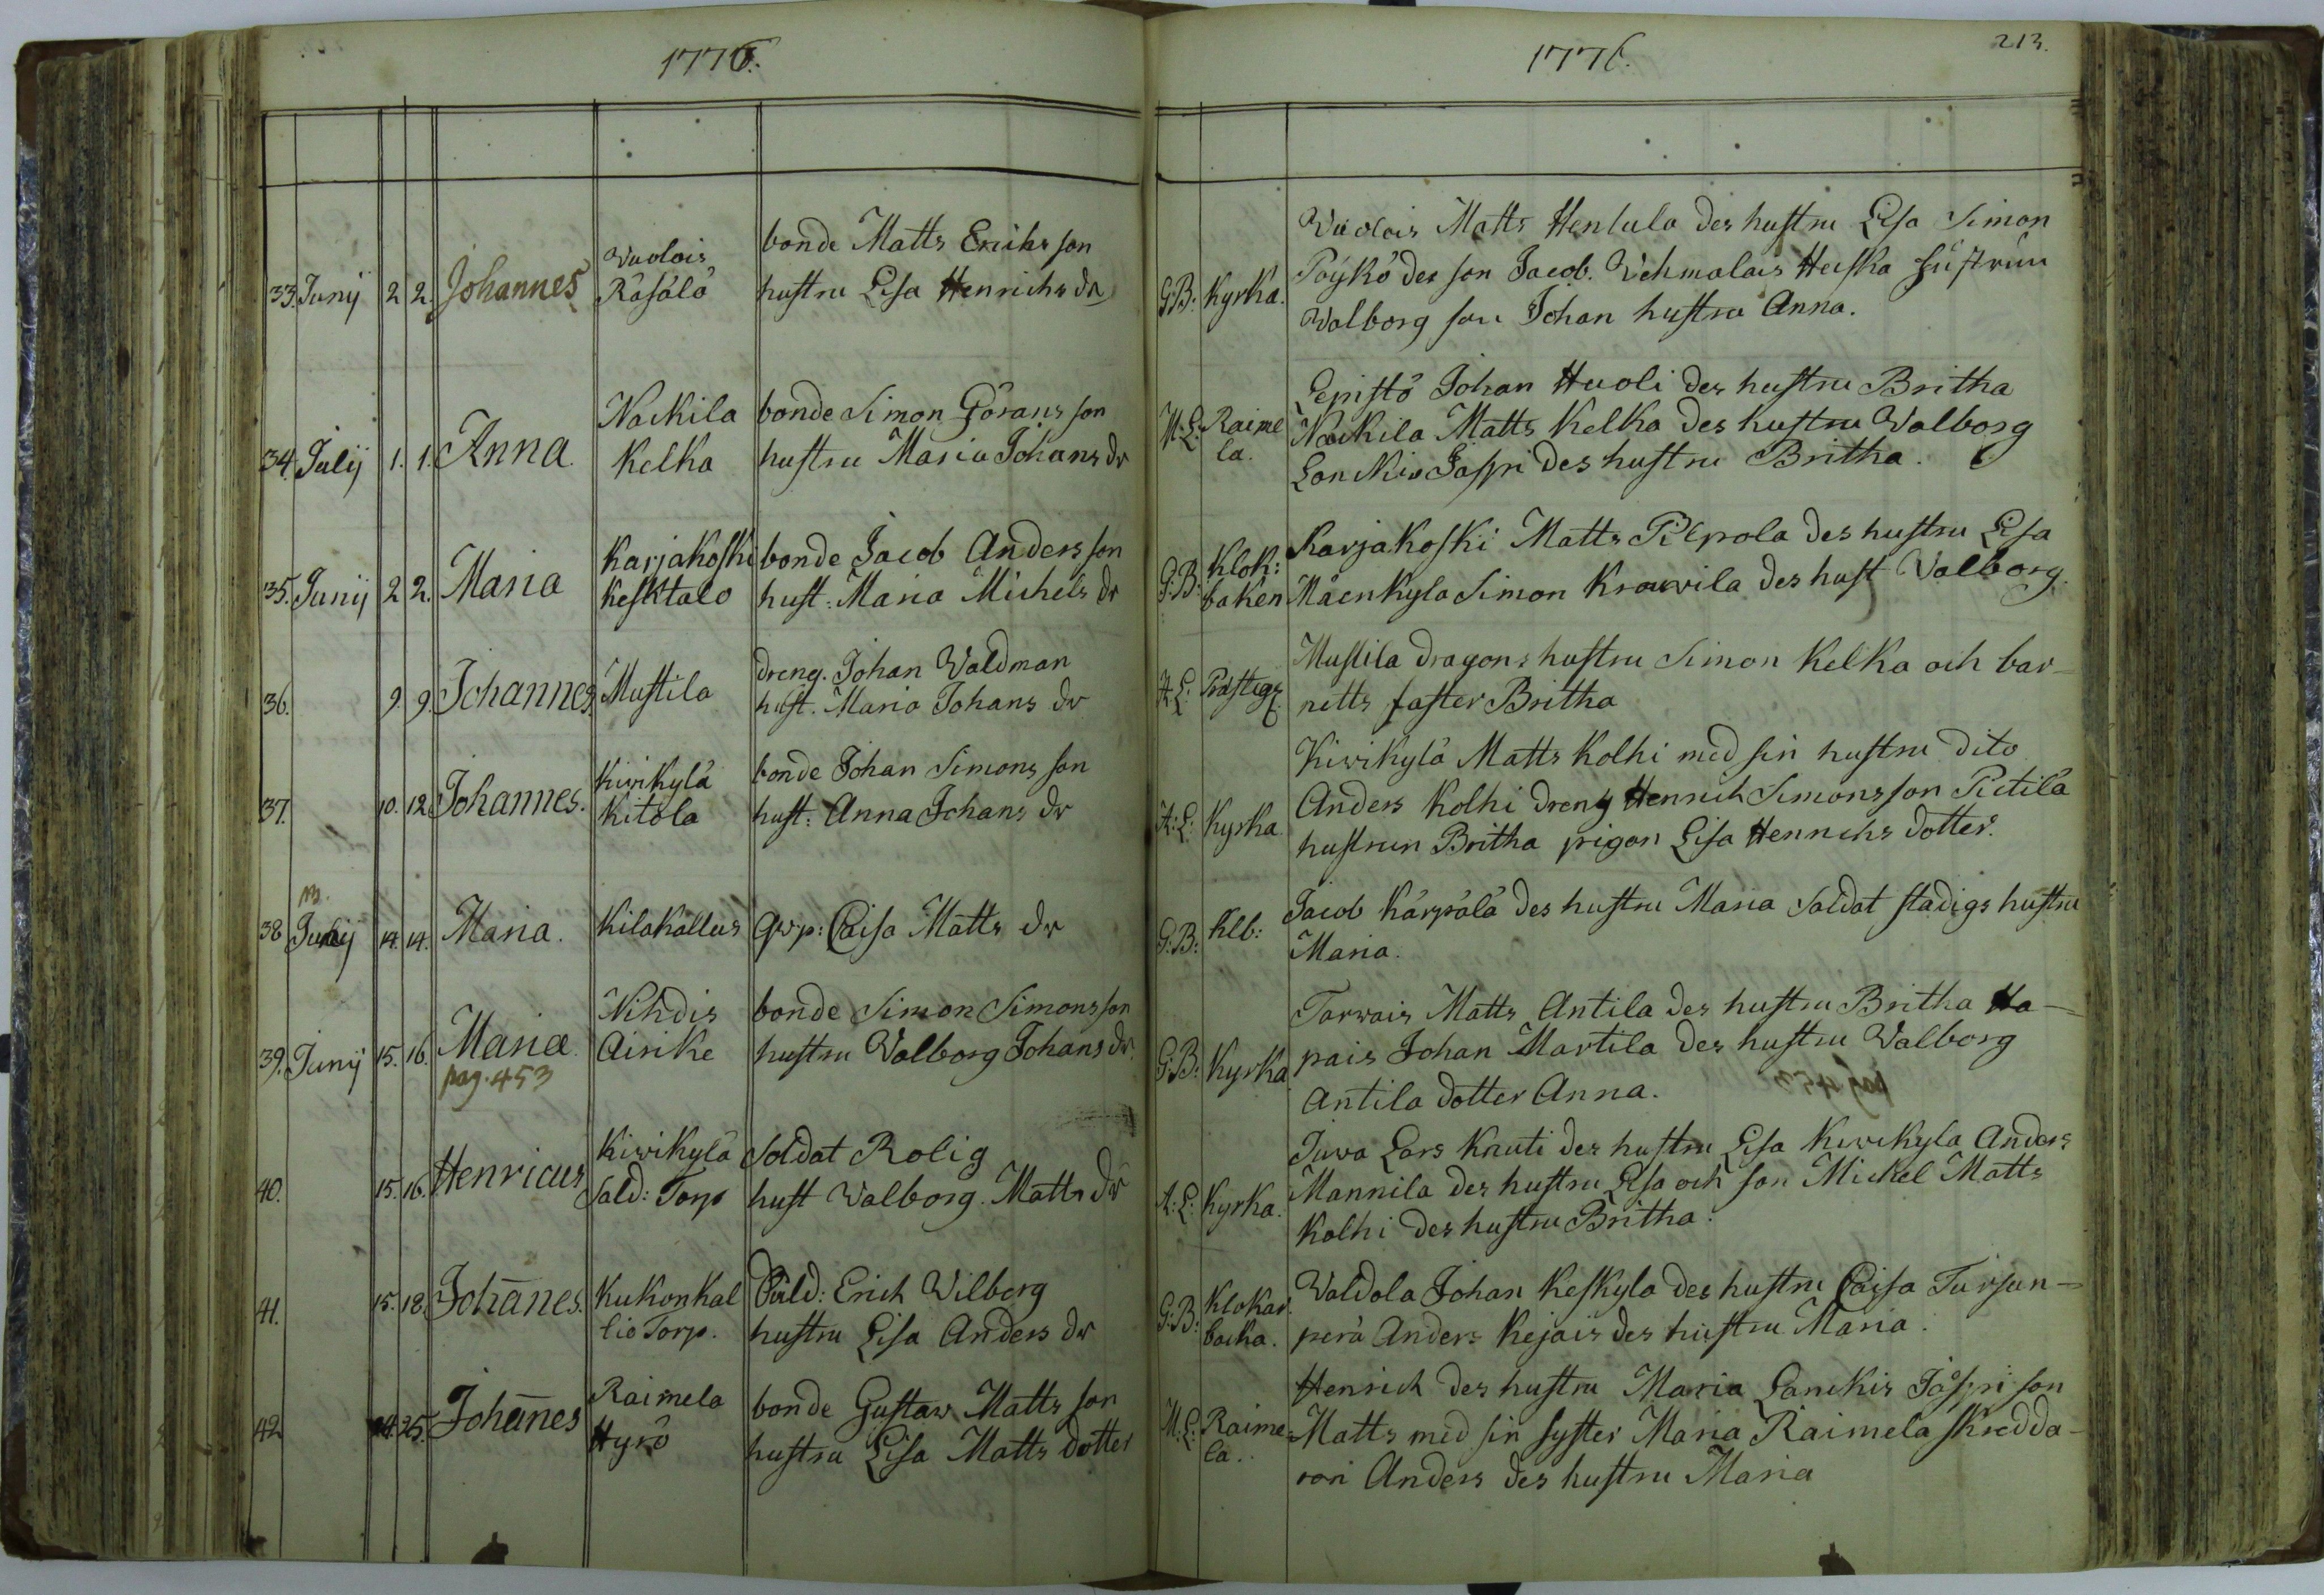 1776.
1776.
213.
33. Junij 2 2. Johannes
Wuolais
Räsälö
bonde Matts Erichs son
hustru Lisa Henrichs dr
G:B: Kyrka.
Wuolais Matts Hentula des hustru Lisa Simon
Pöykö des son Jacob. Wehmalais Heiska hustrun
Walborg son Johan hustru Anna.
34. Julij 1. 1. Anna.
Nackila
Kelka
bonde Simon Görans son
hustru Maria Johans dr
M:L: Raime
la.
Lepistö Johan Huoli des hustru Britha
Nackila Matts Kelka des hustru Walborg
Lanckis Jaspri des hustru Britha.
35. Junij 2 2. Maria
Karjakoski
Kesktalo
bonde Jacob Anders son
hust: Maria Michels dr
G:B: Klok:
baken
Karjakoski Matts Pilpola des hustru Lisa
Mäenkyla Simon Krouvila des hust Walborg.
36. 9. 9. Johannes.
Mustila
dreng. Johan Waldman
hust. Maria Johans dr
A:L: Prästeg.
Mustila dragons hustru Simon Kelka och bar-
netts faster Britha
37. 10. 12 Johannes.
Kiwikylä
Kitola
bonde Johan Simons son
hust: Anna Johans dr
A:L: Kyrka.
Kiwikylä Matts Kolhi med sin hustru dito
Anders Kolhi dreng Henrich Simons son Pietilä
hustrun Britha pigan Lisa Henrichs dotter.
38 Junij 14. 14. Maria.
Kilakallus
Qwp: Caisa Matts dr
G:B: Klb:
Jacob Kärpälä des hustru Maria Soldat stadigs hustru
Maria.
39. Junij 15. 16. Maria.
pag. 453
Nihdis
Airike
bonde Simon Simons son
hustru Walborg Johans dr.
G:B: Kyrka
Tarwais Matts Antila des hustru Britha Ha-
pais Johan Martila des hustru Walborg
Antila dotter Anna.
40. 15. 16. Henricus
Kiwikylä
Sald: Torp
Soldat Rolig
hust Walborg. Matts dr
A:L: Kyrka.
Juva Lars Knuti des hustru Lisa Kiwikyla Anders
Mannila des hustru Lisa och son Mickel Matts
Kolhi des hustru Britha.
41. 15. 18. Johanes.
Kukonkal
lio Torp.
Sald: Erich Wilberg
hustru Lisa Anders dr
G:B: Klokar
backa.
Waldola Johan Keskyla des hustru Caisa Tursun-
perä Anders Kejais des hustru Maria.
42 25. Johanes
Raimela
Hyrö
bonde Gustaw Matts son
hustru Lisa Matts dotter
M:L: Raime
la.
Henrich des hustru Maria Lanckis Jaspri son
Matts med sin syster Maria Raimela skredda-
ren Anders des hustru Maria